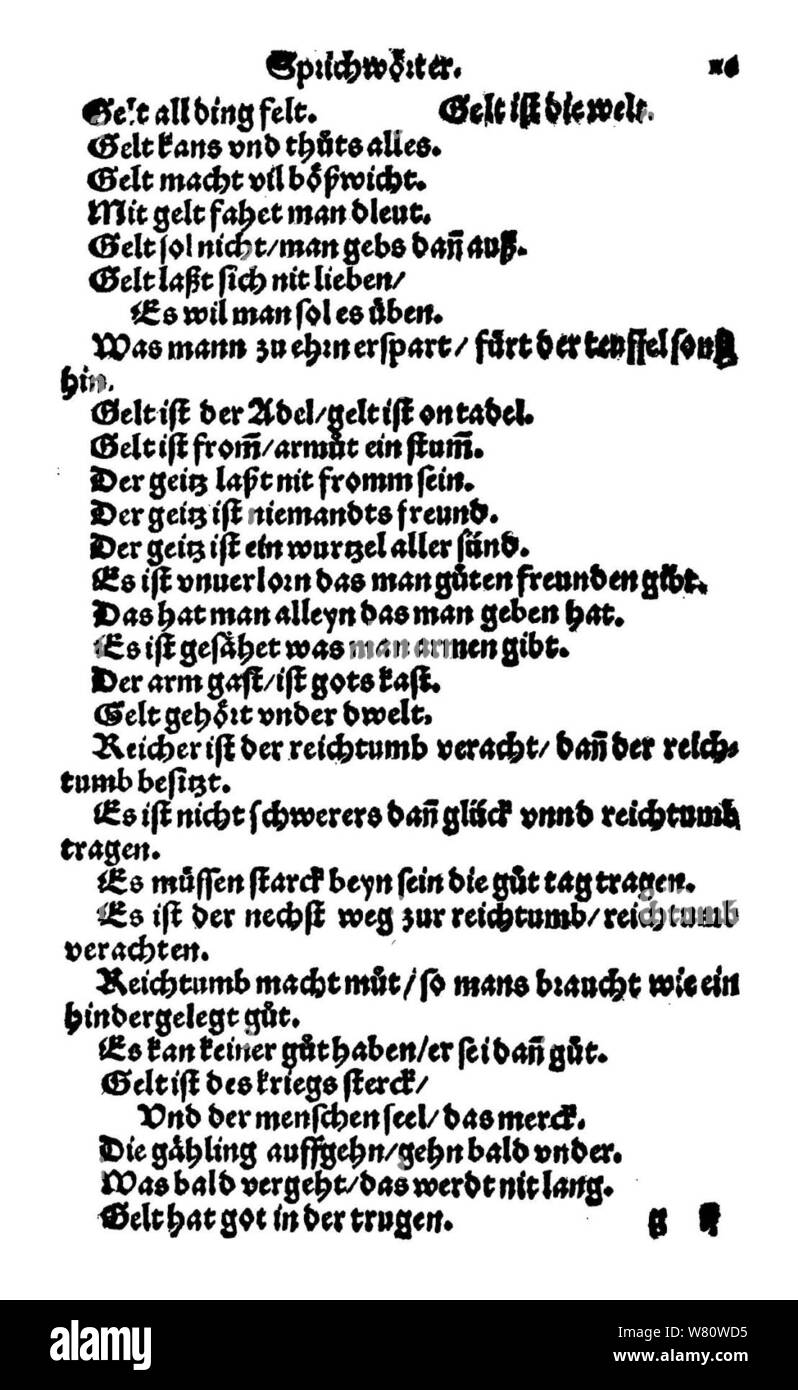 Sprichwörter.
Gelt all ding felt. Gelt ist die welt.
Gelt kans vnd thůts alles.
Gelt macht vil bößwicht.
Mit gelt fahet man dleut.
Gelt sol nicht/man gebs dañ auß.
Gelt laßt sich nit lieben/
Es wil man sol es üben.
Was mann zu ehrn erspart/ fürt der teuffel sonst
hin.
Gelt ist der Adel/gelt ist on tadel.
Gelt ist from̃/armůt ein stum̃.
Der geitz laßt nit fromm sein.
Der geitz ist niemandts freund.
Der geitz ist ein wurtzel aller sünd.
Es ist vnuerlorn das man gůten freunden gibt.
Das hat man alleyn das man geben hat.
Es ist gesähet was man armen gibt.
Der arm gast/ist gots kast.
Gelt gehört vnder dwelt.
Reicher ist der reichtumb veracht/ dañ der reich-
tumb besitzt.
Es ist nicht schwerers dañ glück vnnd reichtumb
tragen.
Es müssen starck beyn sein die gůt tag tragen.
Es ist der nechst weg zur reichtumb/reichtumb
verachten.
Reichtumb macht můt/so mans braucht wie ein
hindergelegt gůt.
Es kan keiner gůt haben/er sei dañ gůt.
Gelt ist des kriegs sterck/
Vnd der menschen seel/das merck.
Die gähling auffgehn/gehn bald vnder.
Was bald vergeht/das werdt nit lang.
Gelt hat got in der trugen.
alamy
Image ID: W80WD5
www.alamy.com